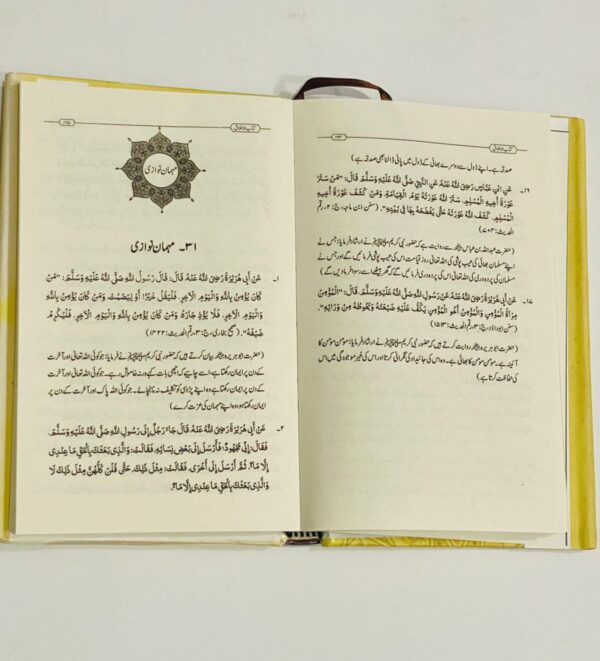 کتاب الاخلاق
۱۹۴
صدقہ ہے۔ اپنے ڈول سے دوسرے بھائی کے ڈول میں پانی ڈالنا بھی صدقہ ہے)
۱۶۔ عَنِ ابْنِ عَبَّاسٍ رَضِيَ اللَّهُ عَنْهُ عَنِ النَّبِيِّ صَلَّى اللَّهُ عَلَيْهِ وَسَلَّمَ قَالَ: "مَنْ سَتَرَ
عَوْرَةَ أَخِيهِ الْمُسْلِمِ، سَتَرَ اللَّهُ عَوْرَتَهُ يَوْمَ الْقِيَامَةِ، وَمَنْ كَشَفَ عَوْرَةَ أَخِيهِ
الْمُسْلِمِ، كَشَفَ اللَّهُ عَوْرَتَهُ حَتَّى يَفْضَحَهُ بِهَا فِي بَيْتِهِ". (سنن ابن ماجہ، ج:۲، رقم
الحدیث:۷۰۳)
(حضرت عبداللہ بن عباس روایت ہے کہ حضور نبی کریم ﷺ نے ارشاد فرمایا: جس نے
اپنے مسلمان بھائی کی عیب پوشی کی اللہ تعالیٰ روز قیامت اس کی عیب پوشی فرمائیں گے اور جس نے
مسلمان کی پردہ دری کی اللہ تعالیٰ اس کی پردہ دری فرمائیں گے کہ گھر بیٹھے اسے رسوا فرما دیں گے)
۱۷۔ عَنْ أَبِي هُرَيْرَةَ رَضِيَ اللَّهُ عَنْهُ عَنْ رَسُولِ اللَّهِ صَلَّى اللَّهُ عَلَيْهِ وَسَلَّمَ قَالَ: "الْمُؤْمِنُ
مِرْآةُ الْمُؤْمِنِ، وَالْمُؤْمِنُ أَخُو الْمُؤْمِنِ يَكُفُّ عَلَيْهِ ضَيْعَتَهُ وَيَحُوطُهُ مِنْ وَرَائِهِ".
(سنن ابوداؤد، ج:۳، رقم الحدیث:۱۵۱۳)
(حضرت ابوہریرہ روایت کرتے ہیں کہ حضور نبی کریم ﷺ نے ارشاد فرمایا: مومن مومن کا
آئینہ ہے۔ مومن مومن کا بھائی ہے۔ وہ اس کی جائیداد کی نگرانی کرتا اور اس کی غیر موجودگی میں اس
کی حفاظت کرتا ہے)
کتاب الاخلاق
۱۹۵
مہمان نوازی
۳۱۔ مہمان نوازی
۱۔ عَنْ أَبِي هُرَيْرَةَ رَضِيَ اللَّهُ عَنْهُ قَالَ: قَالَ رَسُولُ اللَّهِ صَلَّى اللَّهُ عَلَيْهِ وَسَلَّمَ: "مَنْ
كَانَ يُؤْمِنُ بِاللَّهِ وَالْيَوْمِ الْآخِرِ، فَلْيَقُلْ خَيْرًا أَوْ لِيَصْمُتْ، وَمَنْ كَانَ يُؤْمِنُ بِاللَّهِ
وَالْيَوْمِ الْآخِرِ، فَلَا يُؤْذِ جَارَهُ، وَمَنْ كَانَ يُؤْمِنُ بِاللَّهِ وَالْيَوْمِ الْآخِرِ، فَلْيُكْرِمْ
ضَيْفَهُ". (صحیح بخاری، ج:۳، رقم الحدیث:۱۴۲۲)
(حضرت ابوہریرہ بیان کرتے ہیں کہ حضور نبی کریم ﷺ نے فرمایا: جو کوئی اللہ تعالیٰ اور آخرت
کے دن پر ایمان رکھتا ہے اسے چاہیے کہ اچھی بات کہے ورنہ خاموش رہے۔ جو کوئی اللہ تعالیٰ اور آخرت کے دن پر
ایمان رکھتا ہے وہ اپنے پڑوسی کو تکلیف نہ پہنچائے۔ جو کوئی اللہ پاک اور آخرت کے دن پر
ایمان رکھتا ہو وہ اپنے مہمان کی عزت کرے)
۲۔ عَنْ أَبِي هُرَيْرَةَ رَضِيَ اللَّهُ عَنْهُ قَالَ جَاءَ رَجُلٌ إِلَى رَسُولِ اللَّهِ صَلَّى اللَّهُ عَلَيْهِ وَسَلَّمَ،
فَقَالَ: إِنِّي مَجْهُودٌ، فَأَرْسَلَ إِلَى بَعْضِ نِسَائِهِ، فَقَالَتْ: وَالَّذِي بَعَثَكَ بِالْحَقِّ مَا عِنْدِي
إِلَّا مَاءٌ، ثُمَّ أَرْسَلَ إِلَى أُخْرَى، فَقَالَتْ: مِثْلَ ذَلِكَ، حَتَّى قُلْنَ كُلُّهُنَّ مِثْلَ ذَلِكَ لَا
وَالَّذِي بَعَثَكَ بِالْحَقِّ مَا عِنْدِي إِلَّا مَاءٌ،